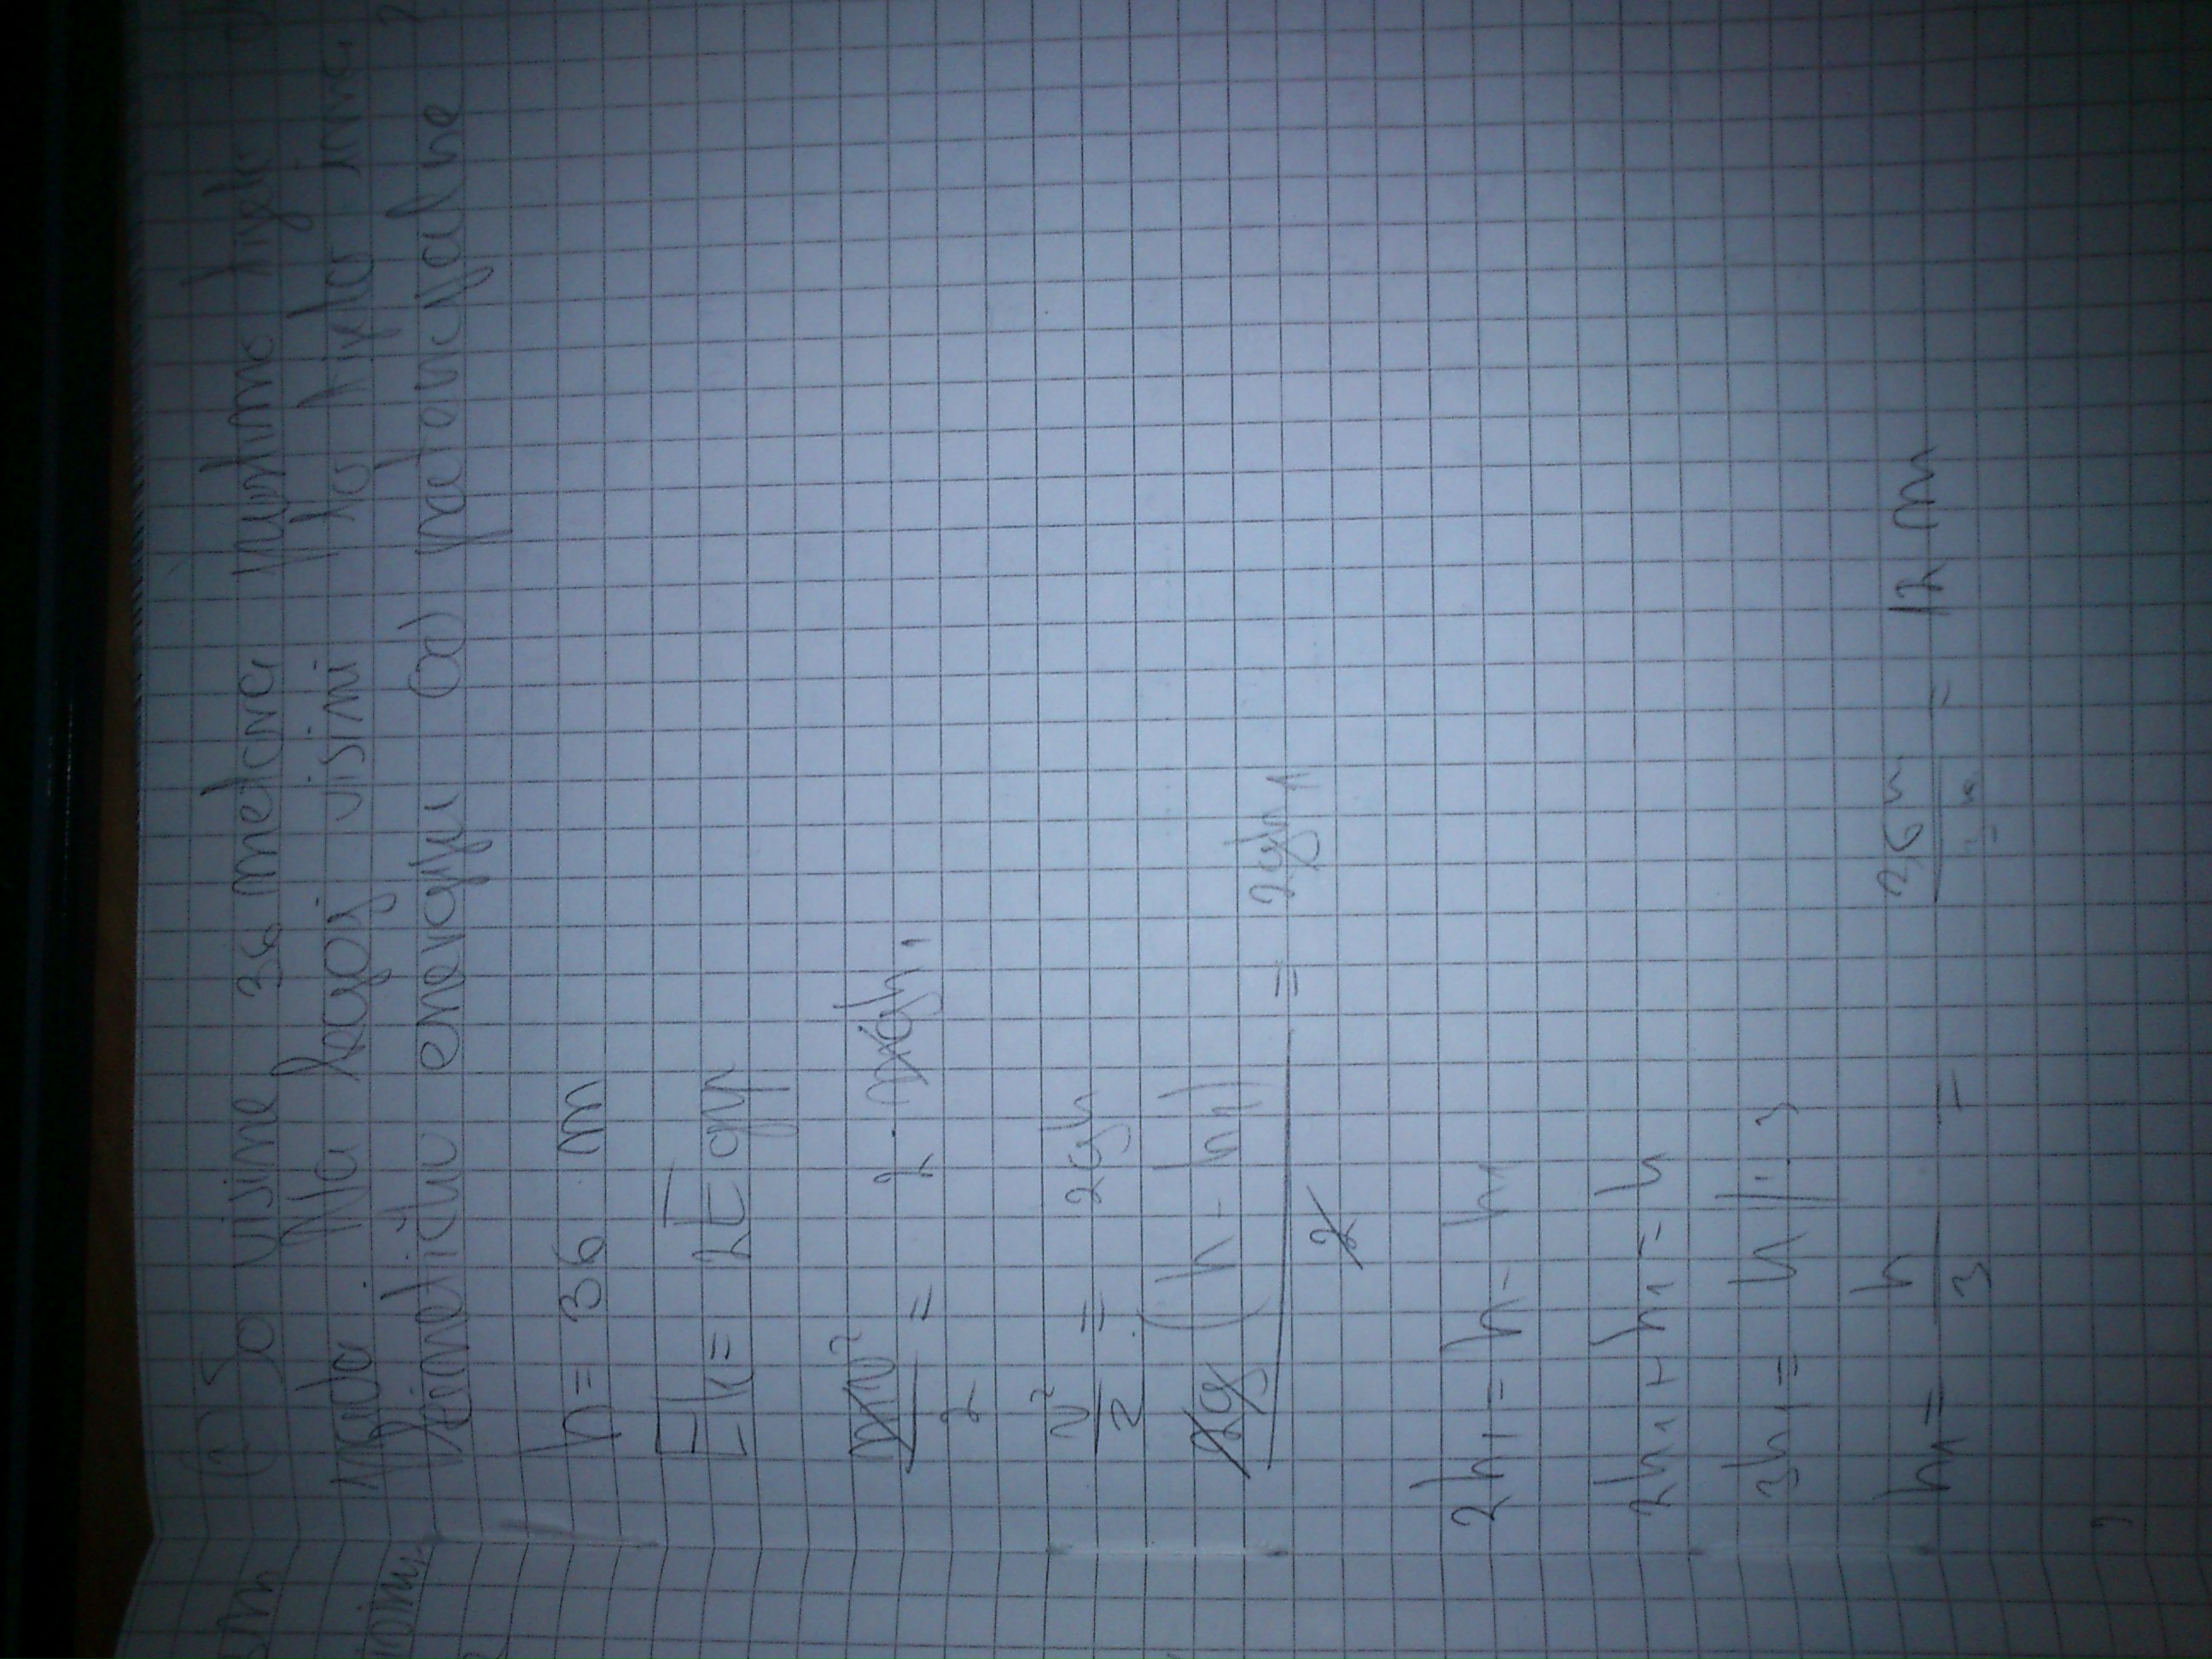 ① Sa visine 36 metara pustimo tijelo da
pada. Na kojoj visini to tijelo ima 2
kinetičku energiju od potencijalne
h = 36 m
Ek = 2Egp
mv²/2 = 2·mgh₁
v²/2 = 2gh
2g·(h-h1)/2 = 2gh1
2h1 = h- h1
2h1+h1 = h
3h1 = h |:3
h1 = h/3 = 36m/3 = 12 m